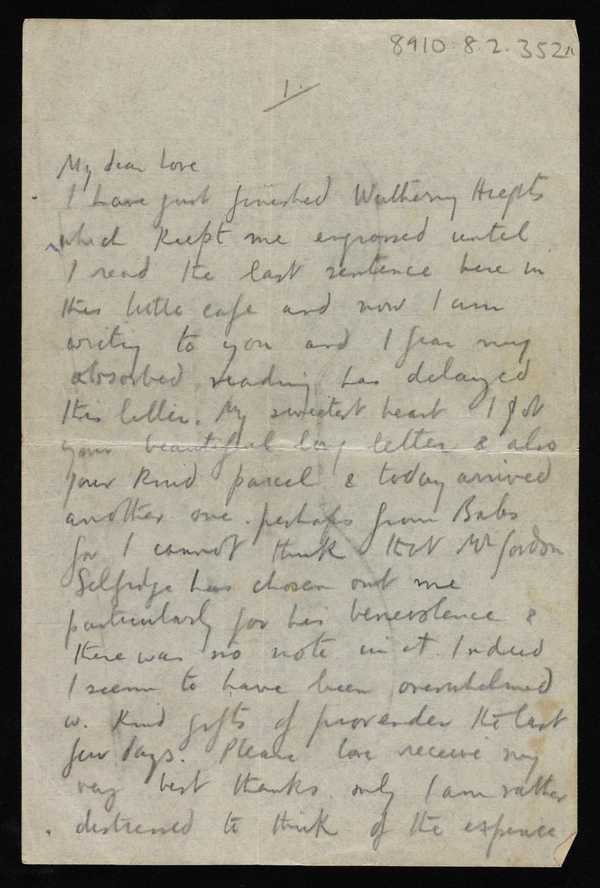 8910.8.2.352
1.
My dear Love
I have just finished Wuthering Heights
which keept me engrossed until
I read the last sentence here in
this little cafe and now I am
writing to you and I fear my
absorbed reading has delayed
this letter. My sweetest heart I got
your beautiful long letter & also
your kind parcel & today arrived
another one. perhaps from Babs
for I cannot think that Mr Gordon
Selfridge has chosen out me
particularly for his benevolence &
there was no note in it. Indeed
I seem to have been overwhelmed
w. kind gifts of provender the last
few days. Please love receive my
very best thanks. only I am rather
distressed to think of the expence